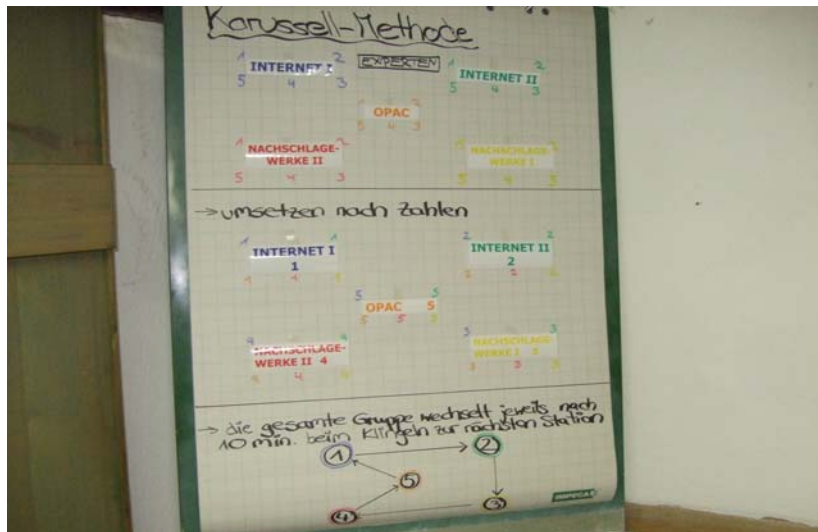 Karussell-Methode
EXPERTEN
1 2
INTERNET I
5 4 3
1 2
INTERNET II
5 4 3
2
OPAC
5 4 3
1 2
NACHSCHLAGE-
WERKE II
5 4 3
NACHSCHLAGE-
WERKE I
5 4 3
→ umsetzen nach Zahlen
1 1
INTERNET I
1
1 1 1
2 2
INTERNET II
2
2 2 2
5 5
OPAC 5
5 5 5
4 4
NACHSCHLAGE-
WERKE II 4
4 4 4
3 3
NACHSCHLAGE-
WERKE I 3
3 3 3
→ die gesamte Gruppe wechselt jeweils nach
10 min. beim Klingeln zur nächsten Station
1 2
5
4 3